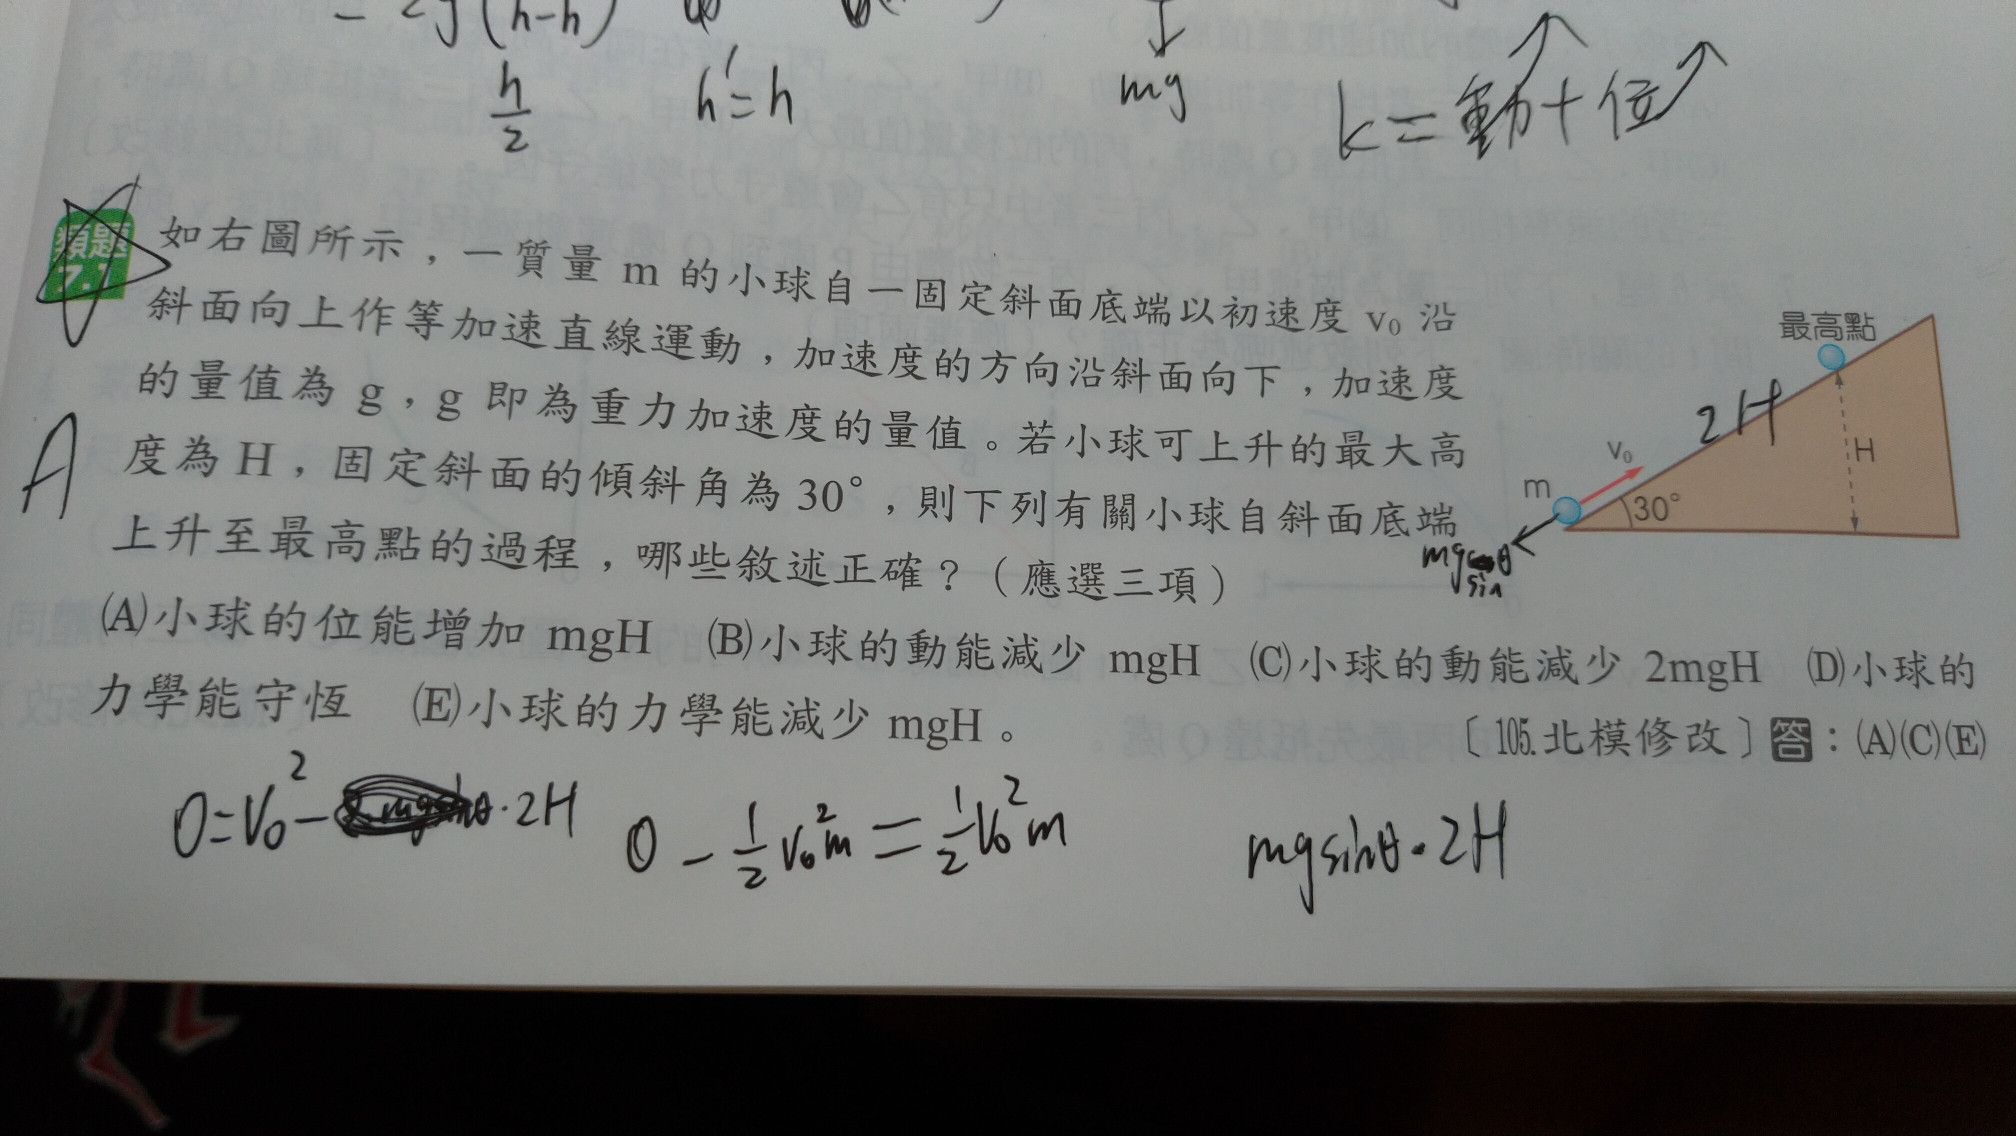 h/2
h'=h
mg
k=動+位
類題
7.
如右圖所示，一質量 m 的小球自一固定斜面底端以初速度 v₀ 沿
斜面向上作等加速直線運動，加速度的方向沿斜面向下，加速度
的量值為 g，g 即為重力加速度的量值。若小球可上升的最大高
度為 H，固定斜面的傾斜角為 30°，則下列有關小球自斜面底端
上升至最高點的過程，哪些敘述正確？（應選三項）
(A)小球的位能增加 mgH (B)小球的動能減少 mgH (C)小球的動能減少 2mgH (D)小球的
力學能守恆 (E)小球的力學能減少 mgH。
〔105.北模修改〕答：(A)(C)(E)
A
最高點
2H
v₀
H
m
30°
mg θ
sin
0=V₀²- ·2H
0-½v₀²m=½V₀²m
mgsinθ·2H